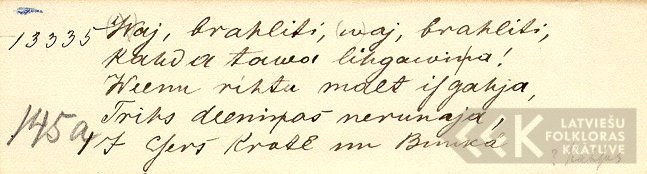 13335 (W)aj, brahliti, (w)aj, brahliti,
Kahda tawa lihgawiņa!
Weenu rihtu malt isgahja,
Trihs deeniņas nerunaja,
145a
LATVIEŠU
FOLKLORAS
KRĀTUVE